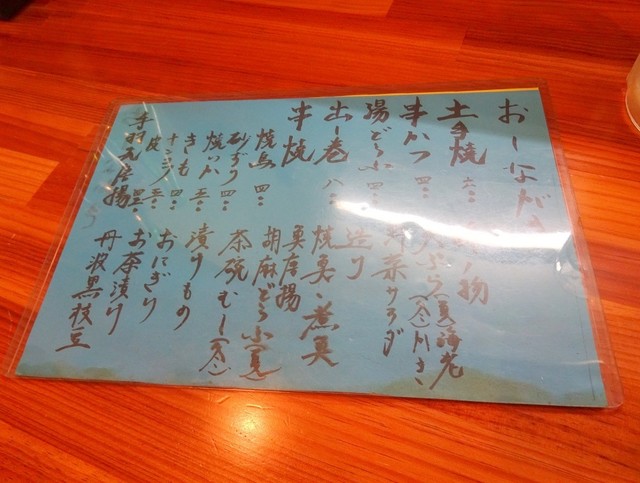 おしながき
土手焼 六〇〇
串かつ 四〇〇
湯どうふ 四〇〇
出し巻 八〇〇
串焼
焼鳥 四〇〇
砂ずり 四〇〇
焼いか 五〇〇
きも 四〇〇
手羽元唐揚
物
(夏)海老
野菜サラダ
造り
焼魚、煮魚
魚唐揚
胡麻どうふ(夏)
茶碗むし(冬)
漬けもの
おにぎり
お茶漬け
丹波黒枝豆